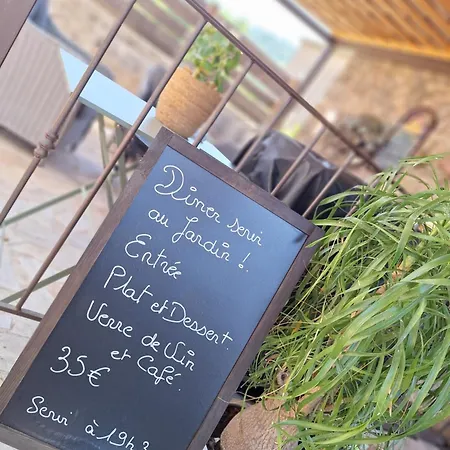 Dîner servi
au Jardin !
Entrée
Plat et Dessert
Verre de Vin
et Café.
35€
Servi à 19h